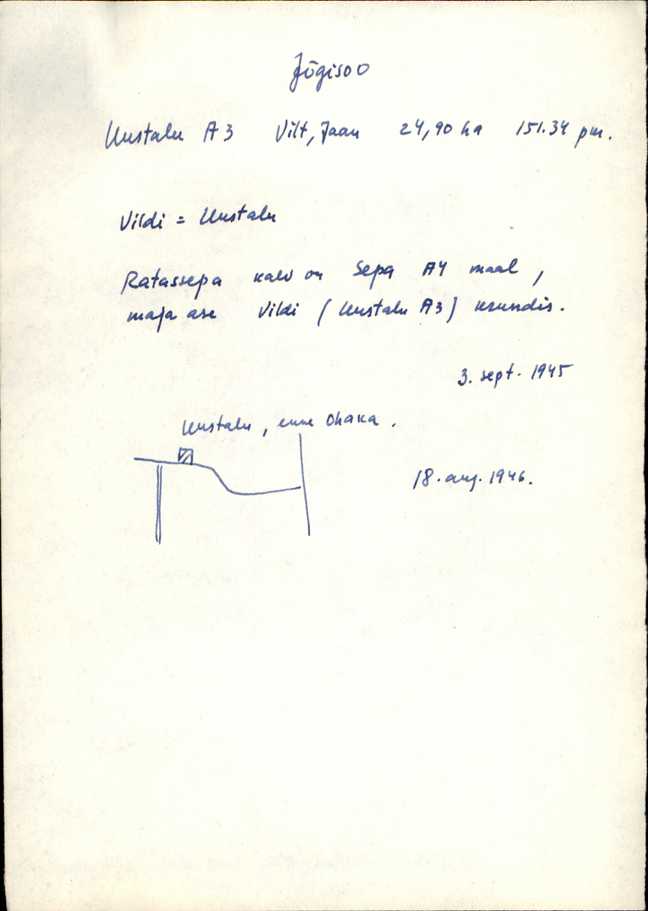 Jõgisoo
Uustalu A3 Vilt, Jaan 24,90 ha 151.34 pm.
Vildi = Uustalu
Ratassepa kaev on Sepa A4 maal,
maja ase Vildi (Uustalu A3) krundis.
3. sept. 1945
Uustalu, enne Ohaka.
18. aug. 1946.